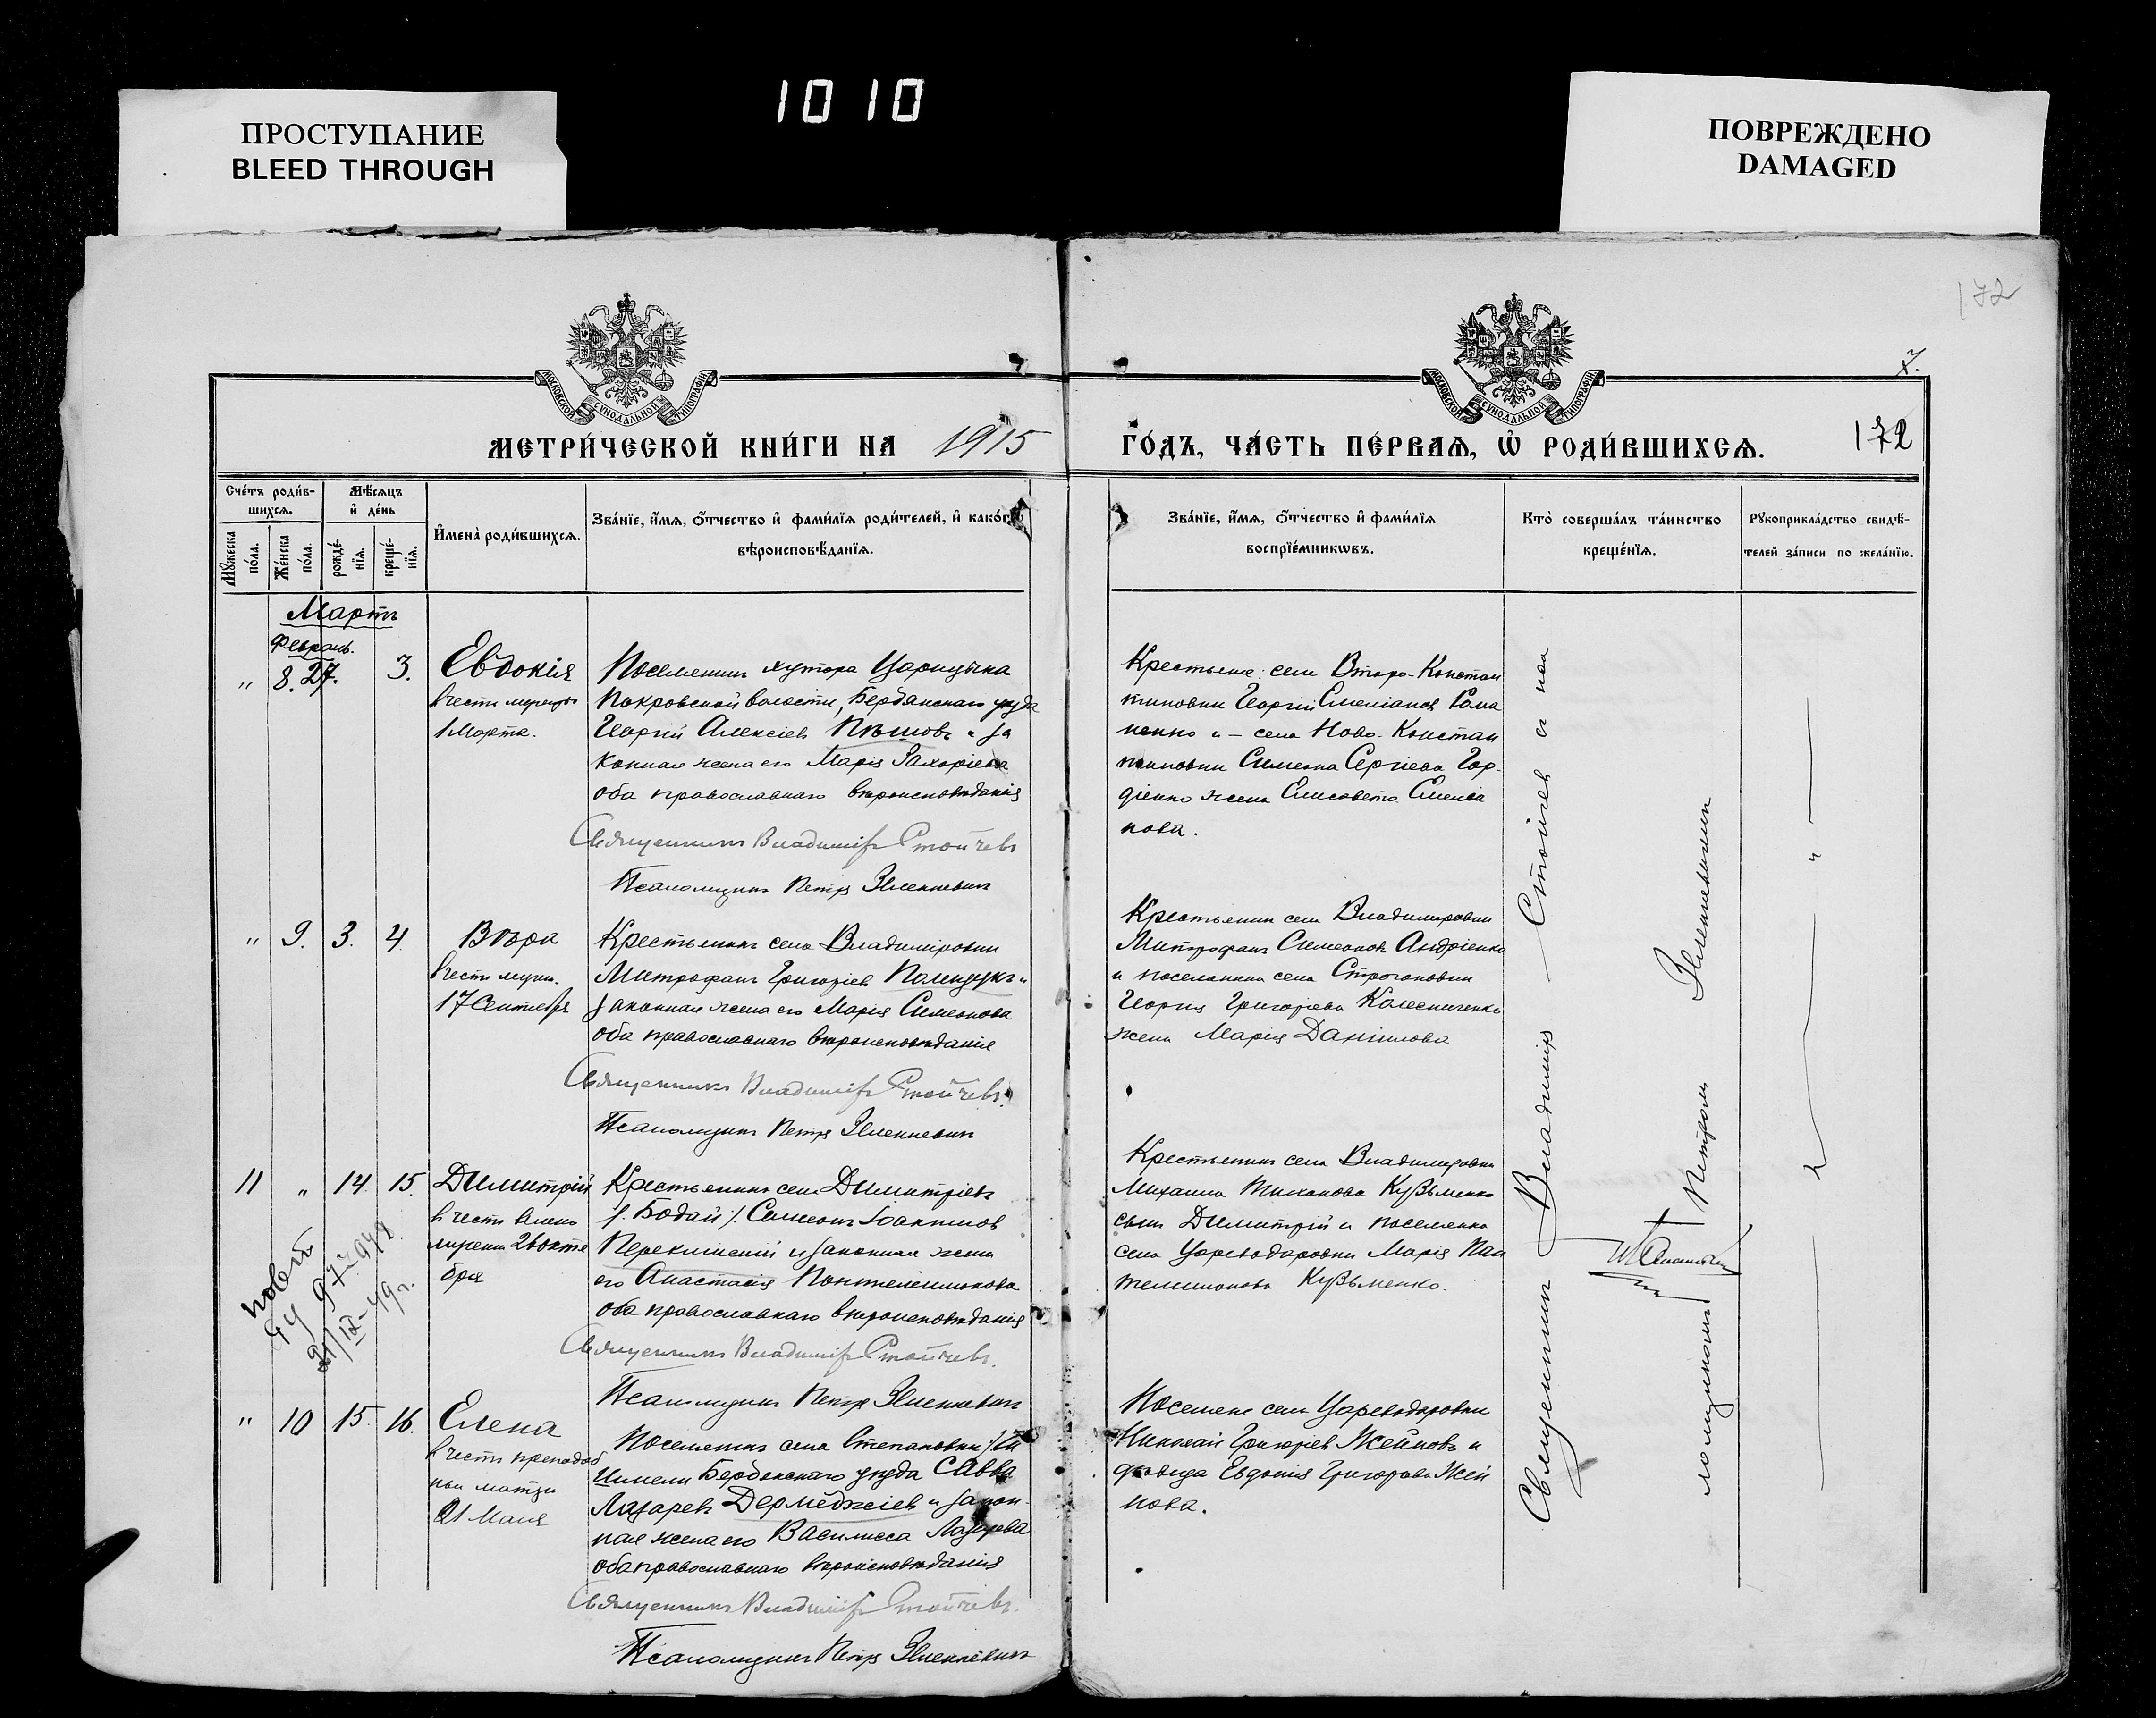 1010
ПРОСТУПАНИЕ
BLEED THROUGH
ПОВРЕЖДЕНО
DAMAGED
172
7.
МОСКОВСКОЙ СѴНОДАЛЬНОЙ ТИПОГРАФІИ
МОСКОВСКОЙ СѴНОДАЛЬНОЙ ТИПОГРАФІИ
МЕТРИ́ЧЕСКОЙ КНИ́ГИ НА 1915
ГО́ДЪ, ЧА́СТЬ ПЕ́РВАЯ, Ѿ РОДИ́ВШИХСЯ.
172
Сче́тъ роди́в-
шихся.
Мѣ́сяцъ
и҆ де́нь
Мꙋ́жеска
по́ла.
Же́нска
по́ла.
рожде́-
нїя.
креще́-
нїя.
И҆мена̀ роди́вшихся.
Зва́нїе, и҆́мя, ѻ҆́тчество и҆ фами́лїя роди́телей, и҆ како́гѡ
вѣроисповѣ́данїя.
Зва́нїе, и҆́мя, ѻ҆́тчество и҆ фами́лїя
воспрїе́мникѡвъ.
Кто̀ соверша́лъ та́инство
креще́нїя.
Рꙋкоприкла́дство свидѣ́-
телей за́писи по жела́нїю.
Мартъ
Февраль.
" 8. 27. 3.
Евдокія
въ честь мученицы
1 Марта.
Поселянинъ хутора Царицына
Покровской волости, Бердянскаго уѣзда
Георгій Алексіевъ Пѣшовъ и за
конная жена его Марія Захаріева
оба православнаго вѣроисповѣданія
Священникъ Владиміръ Стойчевъ
Псаломщикъ Петръ Зѣленкевичъ
Крестьяне: села Второ-Констан
тиновки Георгій Емеліановъ Рома
ненко и – села Ново-Констан
тиновки Симеона Сергіева Гор-
діенко жена Елисавета Емелiа
нова.
" 9. 3. 4.
Вѣра
въ честь мучен.
17 Сентября
Крестьянинъ села Владиміровки
Митрофанъ Григоріевъ Полещукъ и
законная жена его Марія Симеонова
оба православнаго вѣроисповѣданія
Священникъ Владиміръ Стойчевъ.
Псаломщикъ Петръ Зѣленкевичъ
Крестьянинъ села Владиміровки
Митрофанъ Симеоновъ Андріенко
и поселянина села Строгановки
Георгія Григоріева Колесниченко
жена Марія Даніилова
11 " 14. 15.
Димитрій
въ честь велико
мученика 26 октя
бря
Крестьянинъ села Димитріевъ
/. Бодай /. Симеонъ Іоакимовъ
Перекишскій и законная жена
его Анастасія Пантелеимонова
оба православнаго вѣроисповѣданія
Священникъ Владиміръ Стойчевъ.
Псаломщикъ Петръ Зѣленкевичъ
Крестьянина села Владиміровки
Михаила Тиханова Кузьменко
сынъ Димитрій и поселянка
села Цареводаровки Марія Пан
телеимонова Кузьменко.
" 10 15. 16.
Елена
въ честь преподоб
ной матери
21 Мая
Поселянинъ села Степановки
Бердянскаго уѣзда Савва
Лазаревъ Дермеджіевъ и закон
ная жена его Василисса Лазарева
оба православнаго вѣроисповѣданія
Священникъ Владиміръ Стойчевъ.
Псаломщикъ Петръ Зѣленкевичъ
Поселяне села Цареводаровки
Николай Григоріевъ Жейновъ и
вдовица Евдокія Григорьева Жей
нова.
Священникъ Владиміръ Стойчевъ съ пса
ломщикомъ Петромъ Зѣленкевичемъ